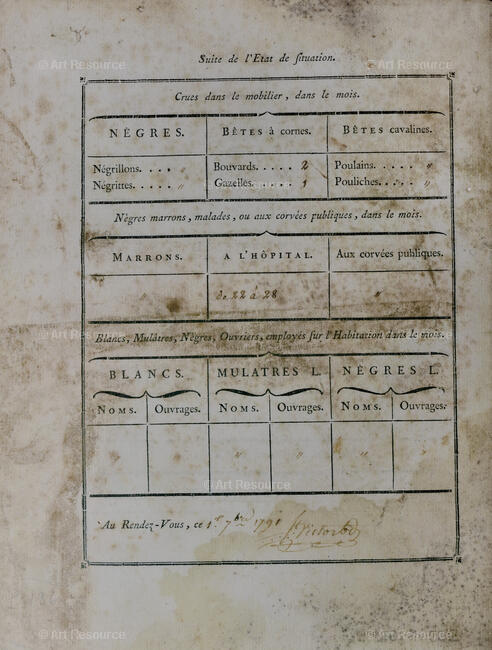 Suite de l'Etat de situation.
Crues dans le mobîlier, dans le mois.
NÈGRES. BÊTES à cornes. BÊTES cavalines.
Négrillons. . . . „ Bouvards. . . . . 2 Poulains. . . . . „
Négrittes. . . . . „ Gazelles. . . . . 1 Pouliches. . . . „
Nègres marrons, malades, ou aux corvées publiques, dans le mois.
MARRONS. A L'HÔPITAL. Aux corvées publiques.
de 22 à 28 „
Blancs, Mulâtres, Nègres, Ouvriers, employés sur l'Habitation dans le mois.
BLANCS. MULATRES L. NÈGRES L.
NOMS. Ouvrages. NOMS. Ouvrages. NOMS. Ouvrages.
„ „ „ „ „ „
Au Rendez-Vous, ce 1er 7bre 1791
© Art Resource © Art Resource
© Art Resource © Art Resource
© Art Resource
© Art Resource © Art Resource